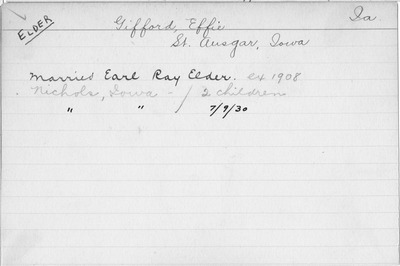 ELDER
Gifford, Effie Ia.
St. Ansgar, Iowa
Married Earl Ray Elder. ex 1908
Nichols, Iowa - / 2 children
" " / 7/9/30